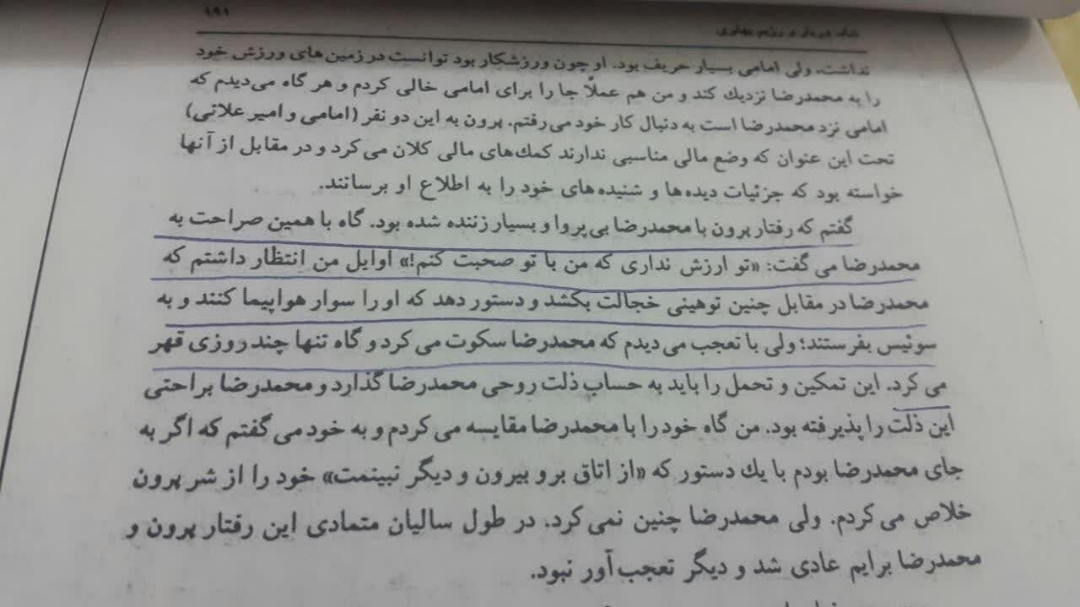 ۱۹۱
نداشت، ولی امامی بسیار حریف بود. او چون ورزشکار بود توانست در زمین‌های ورزش خود
را به محمدرضا نزدیك کند و من هم عملاً جا را برای امامی خالی کردم و هر گاه می‌دیدم که
امامی نزد محمدرضا است به دنبال کار خود می‌رفتم. پرون به این دو نفر (امامی و امیر علائی)
تحت این عنوان که وضع مالی مناسبی ندارند کمك‌های مالی کلان می‌کرد و در مقابل از آنها
خواسته بود که جزئیات دیده‌ها و شنیده‌های خود را به اطلاع او برسانند.
گفتم که رفتار پرون با محمدرضا بی‌پروا و بسیار زننده شده بود. گاه با همین صراحت به
محمدرضا می‌گفت: «تو ارزش نداری که من با تو صحبت کنم!» اوایل من انتظار داشتم که
محمدرضا در مقابل چنین توهینی خجالت بکشد و دستور دهد که او را سوار هواپیما کنند و به
سوئیس بفرستند؛ ولی با تعجب می‌دیدم که محمدرضا سکوت می‌کرد و گاه تنها چند روزی قهر
می‌کرد. این تمکین و تحمل را باید به حساب ذلت روحی محمدرضا گذارد و محمدرضا براحتی
این ذلت را پذیرفته بود. من گاه خود را با محمدرضا مقایسه می‌کردم و به خود می‌گفتم که اگر به
جای محمدرضا بودم با یك دستور که «از اتاق برو بیرون و دیگر نبینمت» خود را از شر پرون
خلاص می‌کردم. ولی محمدرضا چنین نمی‌کرد. در طول سالیان متمادی این رفتار پرون و
محمدرضا برایم عادی شد و دیگر تعجب‌آور نبود.